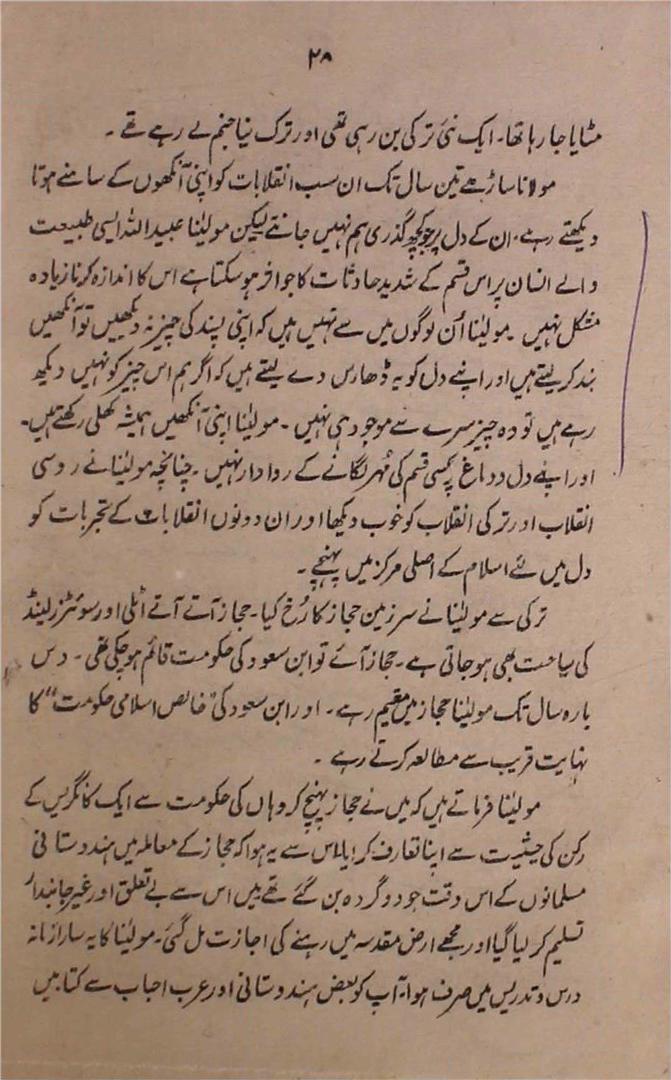 ۲۸
مٹایا جا رہا تھا۔ ایک نئی ترکی بن رہی تھی اور ترک نیا جنم لے رہے تھے ۔
مولانا ساڑھے تین سال تک ان سب انقلابات کو اپنی آنکھوں کے سامنے ہوتا
دیکھتے رہے، ان کے دل پر جو کچھ گذری ہم نہیں جانتے لیکن مولینٰا عبید اللہ ایسی طبیعت
والے انسان پر اس قسم کے شدید حادثات کا جو اثر ہو سکتا ہے اس کا اندازہ کرنا زیادہ
مشکل نہیں ۔ مولینٰا اُن لوگوں میں سے نہیں ہیں کہ اپنی پسند کی چیز نہ دیکھیں تو آنکھیں
بند کر لیتے ہیں اور اپنے دل کو یہ ڈھارس دے لیتے ہیں کہ اگر ہم اس چیز کو نہیں دیکھ
رہے ہیں تو وہ چیز سرے سے موجود ہی نہیں ۔ مولینٰا اپنی آنکھیں ہمیشہ کھلی رکھتے ہیں۔
اور اپنے دل و دماغ پر کسی قسم کی مُہر لگانے کے روا دار نہیں ۔ چنانچہ مولینٰا نے روسی
انقلاب اور ترکی انقلاب کو خوب دیکھا اور ان دونوں انقلابات کے تجربات کو
دل میں لئے اسلام کے اصلی مرکز میں پہنچے ۔
ترکی سے مولینٰا نے سرزمین حجاز کا رُخ کیا۔ حجاز آتے آتے اٹلی اور سوئٹزر لینڈ
کی سیاحت بھی ہو جاتی ہے۔ حجاز آئے تو ابن سعود کی حکومت قائم ہو چکی تھی ۔ دس
بارہ سال تک مولینٰا حجاز میں مقیم رہے ۔ اور ابن سعود کی "خالص اسلامی حکومت" کا
نہایت قریب سے مطالعہ کرتے رہے ۔
مولینٰا فرماتے ہیں کہ میں نے حجاز پہنچ کر وہاں کی حکومت سے ایک کانگریس کے
رکن کی حیثیت سے اپنا تعارف کرایا۔ اس سے یہ ہوا کہ حجاز کے معاملہ میں ہندوستانی
مسلمانوں کے اس وقت جو دو گروہ بن گئے تھے میں اس سے بے تعلق اور غیر جانبدار
تسلیم کر لیا گیا اور مجھے ارض مقدسہ میں رہنے کی اجازت مل گئی۔ مولینٰا کا یہ سارا زمانہ
درس و تدریس میں صرف ہوا۔ آپ کو بعض ہندوستانی اور عرب احباب سے کتابیں